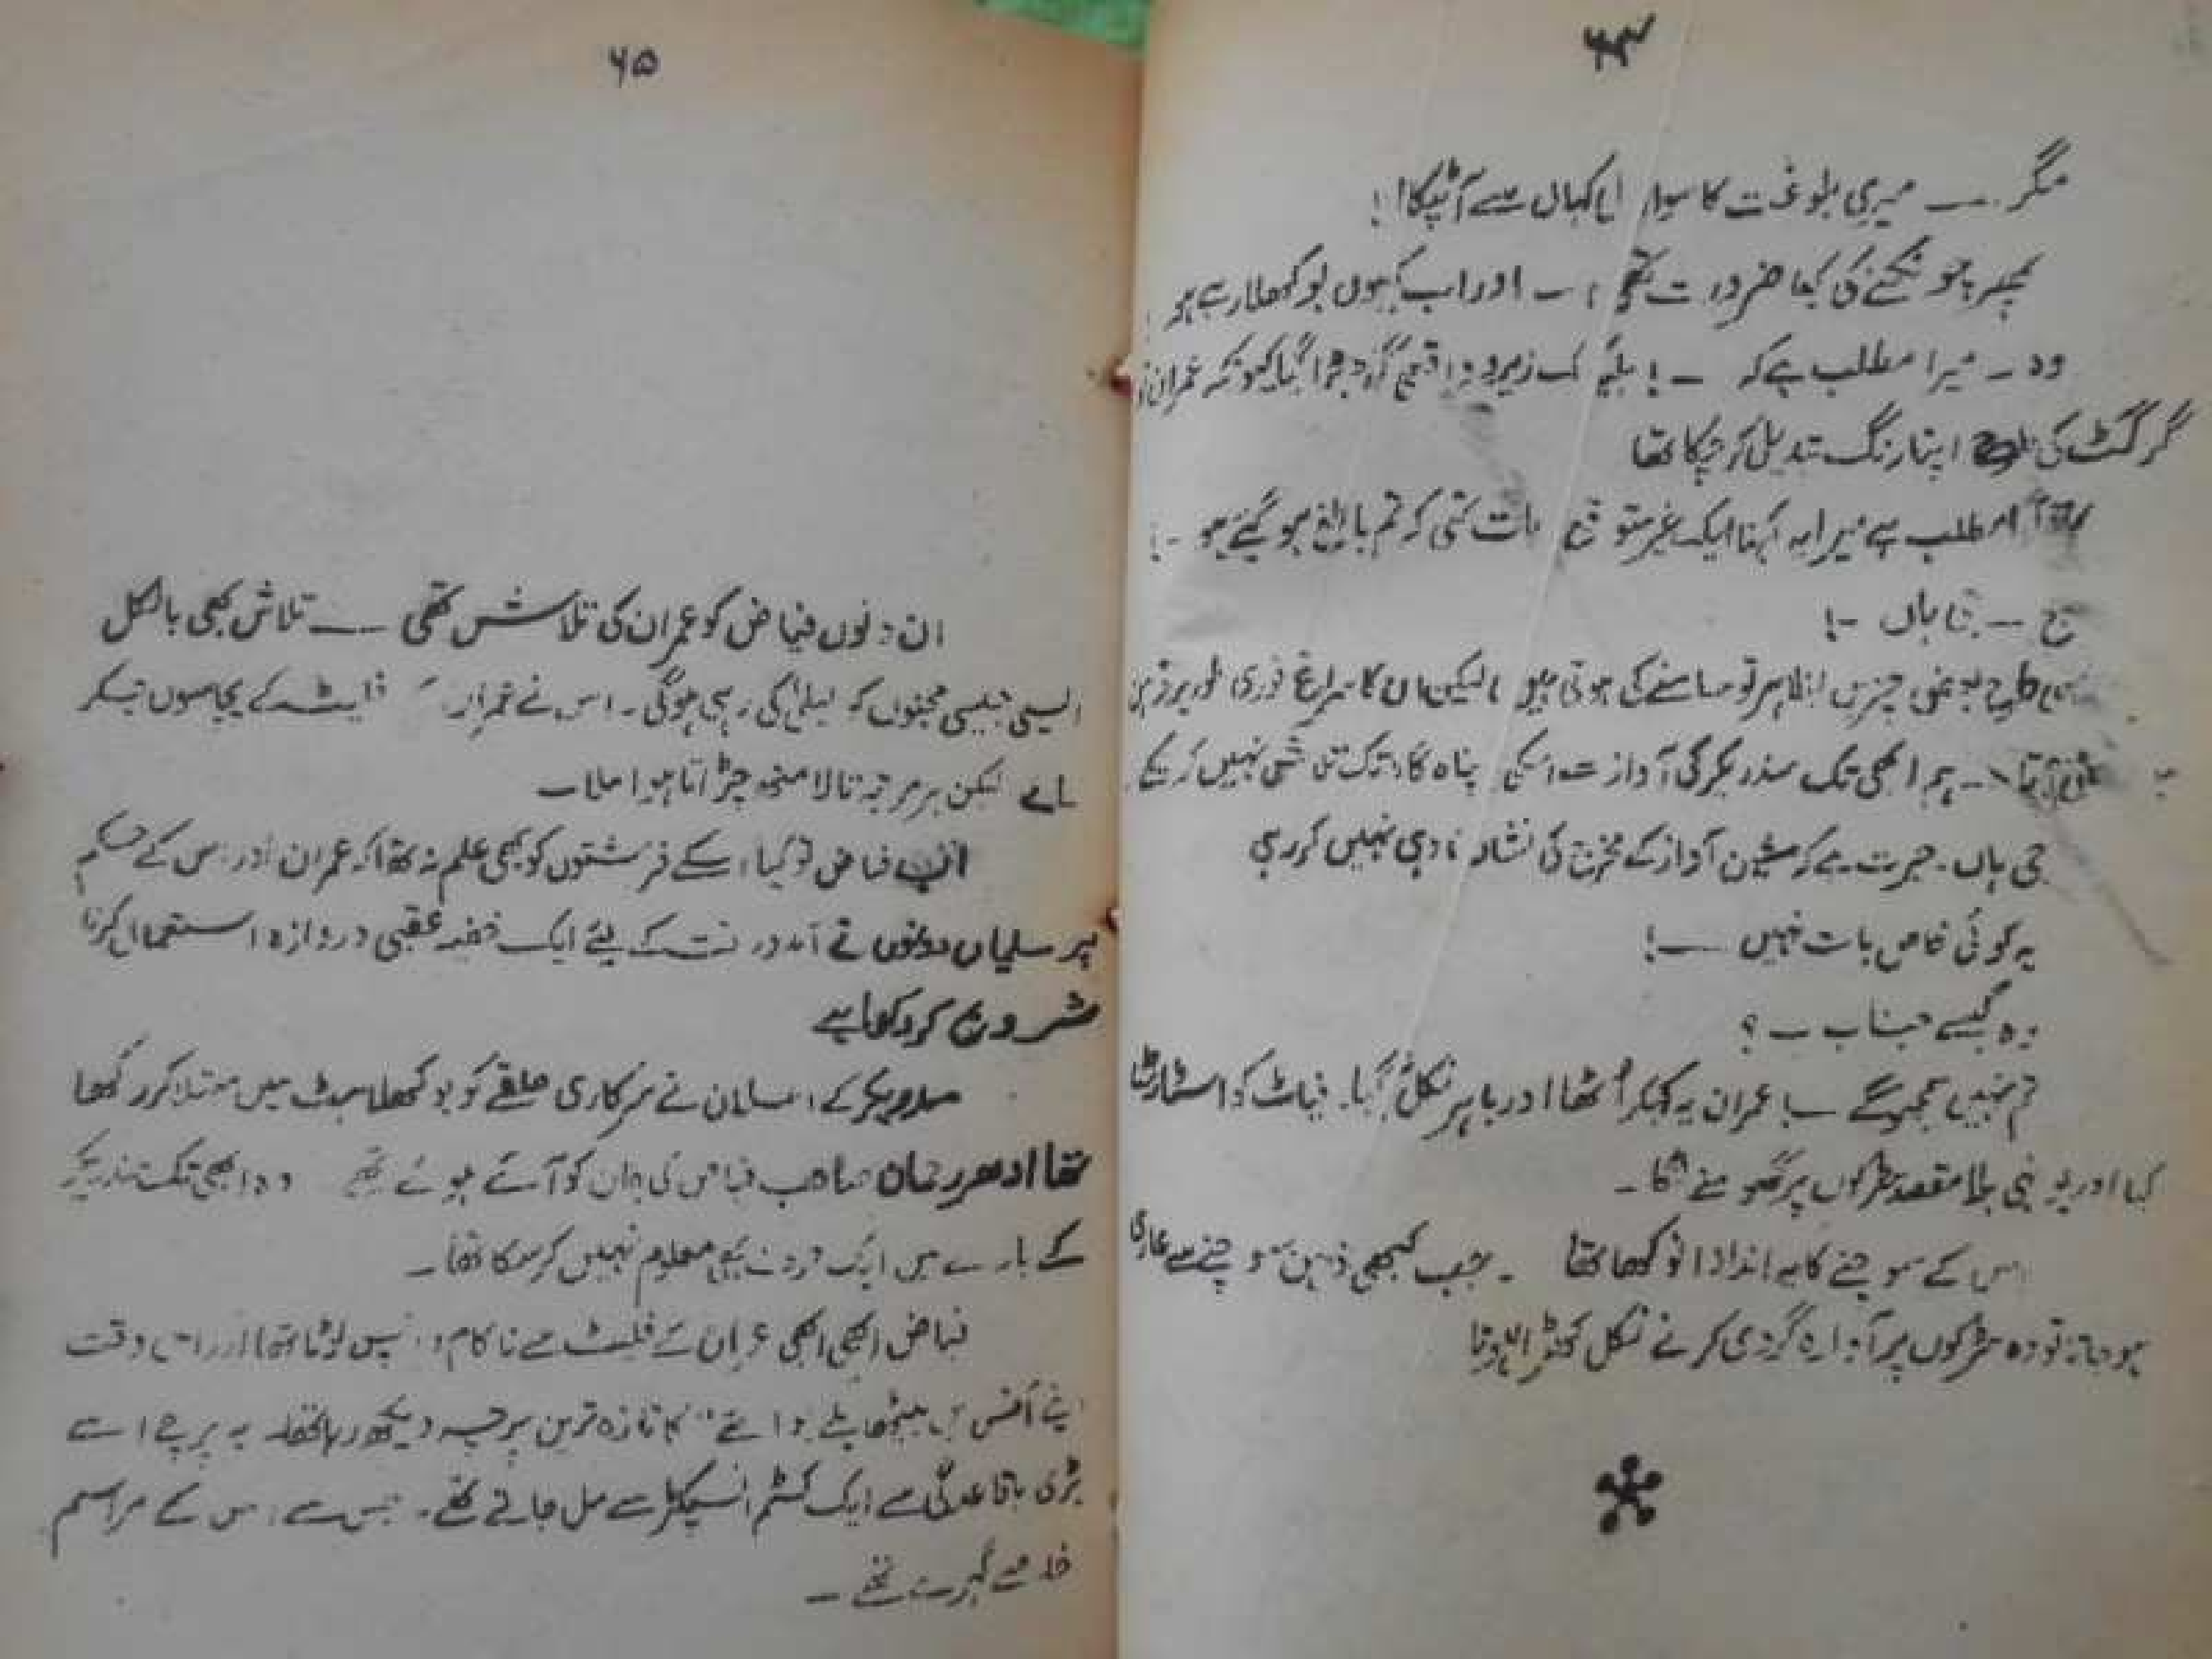 ۶۴
مگر ـــ میری بلوغت کا سوال کہاں سے آٹپکا !
پھر چونکنے کی کیا ضرورت تھی ـ اور اب کیوں بوکھلا رہے ہو !
وہ ـ میرا مطلب ہے کہ ـ ! بلیک زیرو واقعی گڑبڑا گیا کیونکہ عمران
گرگٹ کی طرح اپنا رنگ تبدیل کر چکا تھا
مطلب ہے میرا یہ کہنا ایک غیر متوقع بات تھی کہ تم بالغ ہو گئے ہو ـ !
ج ـ جی ہاں ـ !
اسی طرح بعض چیزیں بظاہر تو سامنے کی ہوتی ہیں لیکن ان کا سراغ فوری طور پر نہیں
ـ ہم ابھی تک سندریکر کی آواز سے اسکی پناہ گاہ تک تلاش نہیں کر سکے
جی ہاں ـ حیرت ہے کہ مشین آواز کے مخرج کی نشاندہی نہیں کر رہی
یہ کوئی خاص بات نہیں ـــ !
وہ کیسے جناب ـ ؟
تم نہیں سمجھو گے ـ ! عمران یہ کہکر اُٹھا اور باہر نکل گیا ـ فیاٹ کو اسٹارٹ
کیا اور یونہی بلا مقصد سڑکوں پر گھومنے لگا ـ
اس کے سوچنے کا یہ انداز انوکھا تھا ـ جب کبھی ذہن سوچنے سے عاری
ہو جاتا تو وہ سڑکوں پر آوارہ گردی کرنے نکل کھڑا ہوتا
۶۵
ان دنوں فیاض کو عمران کی تلاش تھی ـــ تلاش بھی بالکل
ایسی جیسی مجنوں کو لیلیٰ کی رہی ہوگی ـ اس نے عمران کے فلیٹ کے پچاسوں چکر
لگائے لیکن ہر مرتبہ تالا منھ چڑاتا ہوا ملا ـ
اب فیاض تو کیا اسکے فرشتوں کو بھی علم نہ تھا کہ عمران اور اس کے حکم
پر سلیمان دونوں نے آمدورفت کے لئے ایک خفیہ عقبی دروازہ استعمال کرنا
شروع کر رکھا ہے
سندریکر کے اعلان نے سرکاری حلقے کو بوکھلاہٹ میں مبتلا کر رکھا
تھا ادھر رحمان صاحب فیاض کی جان کو آئے ہوئے تھے وہ ابھی تک سندریکر
کے بارے میں ایک حرف بھی معلوم نہیں کر سکا تھا ـ
فیاض ابھی ابھی عمران کے فلیٹ سے ناکام واپس لوٹا تھا اور اس وقت
اپنے آفس میں بیٹھا پلے بوائے" کا تازہ ترین پرچہ دیکھ رہا تھا ـ یہ پرچے اسے
بڑی باقاعدگی سے ایک کسٹم انسپکٹر سے مل جاتے تھے ـ جس سے اس کے مراسم
خاصے گہرے تھے ـ